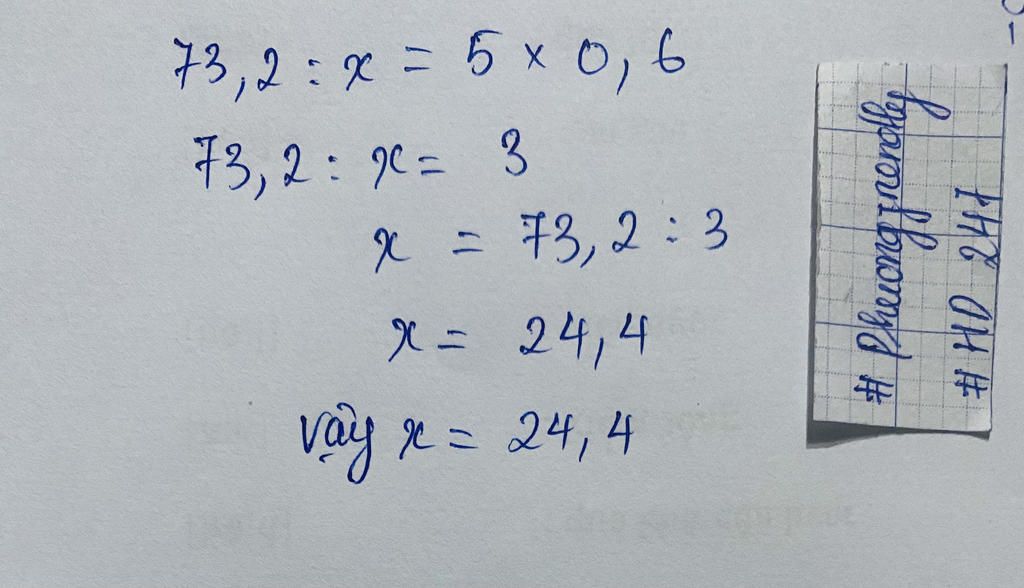 73,2 : x = 5 × 0,6
73,2 : x = 3
x = 73,2 : 3
x = 24,4
Vậy x = 24,4
# HD 247